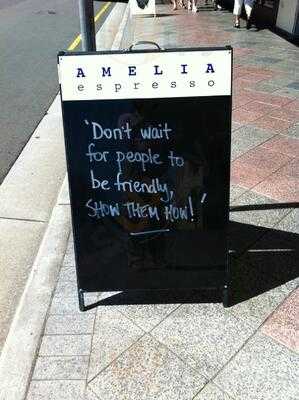 AMELIA
espresso
'Don't wait
for people to
be friendly,
SHOW THEM HOW!'